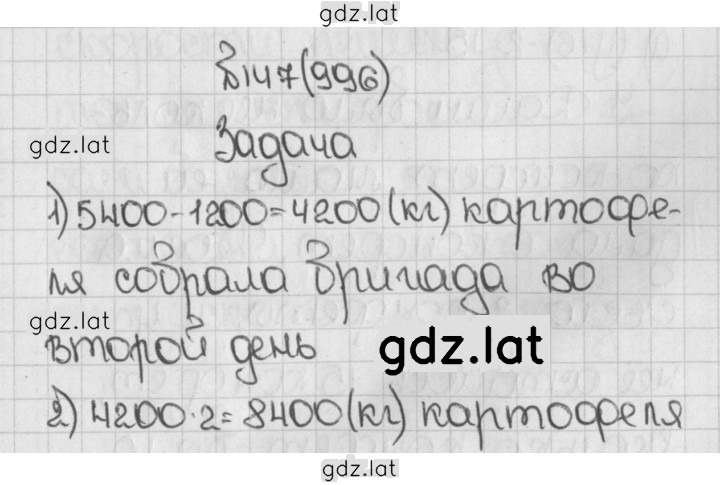 gdz.lat
№147(996)
gdz.lat
Задача
1) 5400-1200=4200(кг) картофе-
ля собрала бригада во
gdz.lat
второй день
gdz.lat
2) 4200·2=8400(кг) картофеля
gdz.lat